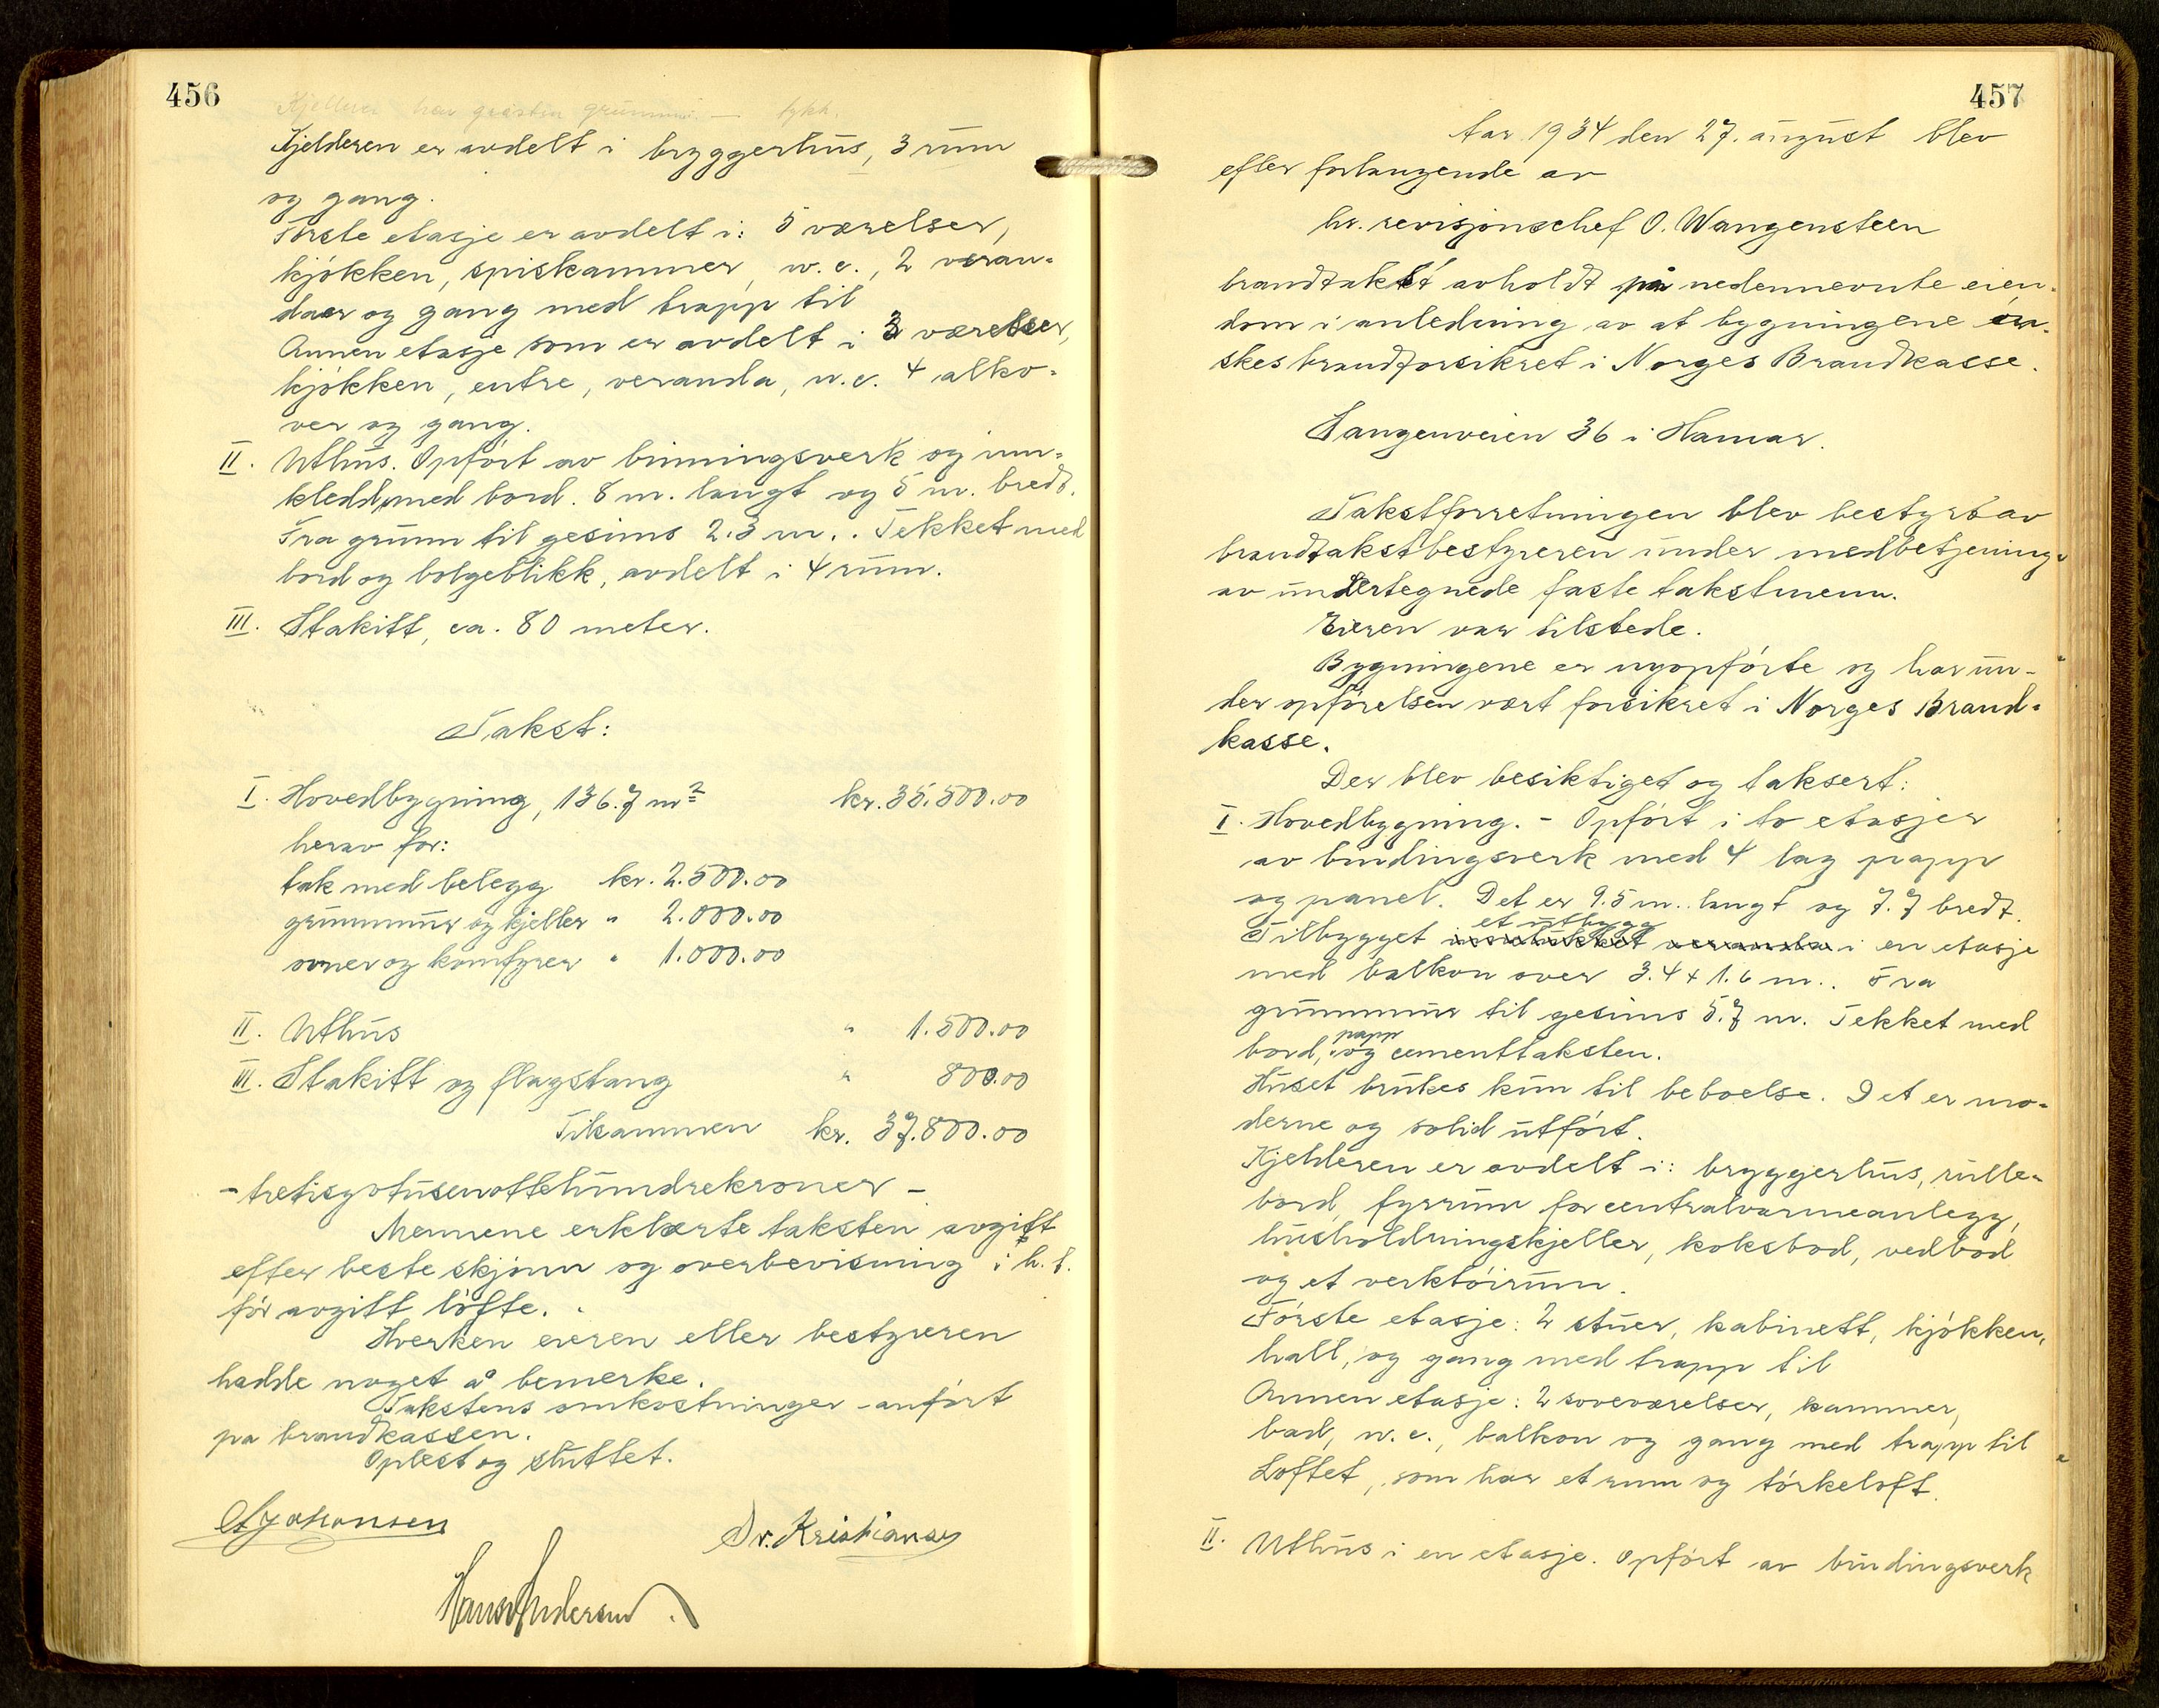 456
Kjelderen er avdelt i bryggerhus, 3 rum
og gang.
Første etasje er avdelt i: 5 værelser,
kjøkken, spiskammer, w.c., 2 veran-
daer og gang med trapp til
Annen etasje som er avdelt i 3 værelser,
kjøkken, entre, veranda, w.c. 4 alko-
ver og gang.
II. Uthus. Opført av binningsverk og inn-
kledd med bord. 8 m. langt og 5 m. bredt.
Fra grunn til gesims 2.3 m.. Tekket med
bord og bølgeblikk, avdelt i 4 rum.
III. Stakitt, ca. 80 meter.
Takst:
I. Hovedbygning, 136.7 m² kr. 35.500.00
herav for:
tak med belegg kr. 2.500.00
grunnmur og kjeller " 2.000.00
ovner og komfyrer " 1.000.00
II. Uthus " 1.500.00
III. Stakitt og flagstang " 800.00
Tilsammen kr. 37.800.00
- tretisyvtusenottehundrekroner -
Mennene erklærte taksten avgitt
efter beste skjønn og overbevisning i h.t.
før avgitt løfte.
Hverken eieren eller bestyreren
hadde noget å bemerke.
Takstens omkostninger anført
på brandkassen.
Oplest og sluttet.
A Johansen
Dr. Kristiansen
Hans Andersen.
457
Aar 1934 den 27. august blev
efter forlangende av
hr. revisjonschef O. Wangensteen
brandtakst avholdt på nedennevnte eien-
dom i anledning av at bygningene øn-
skes brandforsikret i Norges Brandkasse.
Vangenveien 36 i Hamar.
Takstforretningen blev bestyrt av
brandtakstbestyreren under medbetjening
av undertegnede faste takstmenn.
Eieren var tilstede.
Bygningene er nyopførte og har un-
der opførelsen vært forsikret i Norges Brand-
kasse.
Der blev besiktiget og taksert:
I. Hovedbygning. - Opført i to etasjer
av bindingsverk med 4 lag papp
og panel. Det er 9.5 m. langt og 7.7 bredt.
et utbygg
Tilbygget innelukket veranda i en etasje
med balkon over 3.4 + 1.6 m.. Fra
grunnmur til gesims 5.7 m. Tekket med
papp
bord, og cementtaksten.
Huset brukes kun til beboelse. Det er mo-
derne og solid utført.
Kjelderen er avdelt i: bryggerhus, rulle-
bord, fyrrum for centralvarmeanlegg,
husholdningskjeller, koksbod, vedbod
og et verktøirum.
Første etasje: 2 stuer, kabinett, kjøkken,
hall, og gang med trapp til
Annen etasje: 2 soveværelser, kammer,
bad, w.c., balkon og gang med trapp til
Loftet, som har et rum og tørkeloft.
II. Uthus i en etasje. Opført av bindingsverk